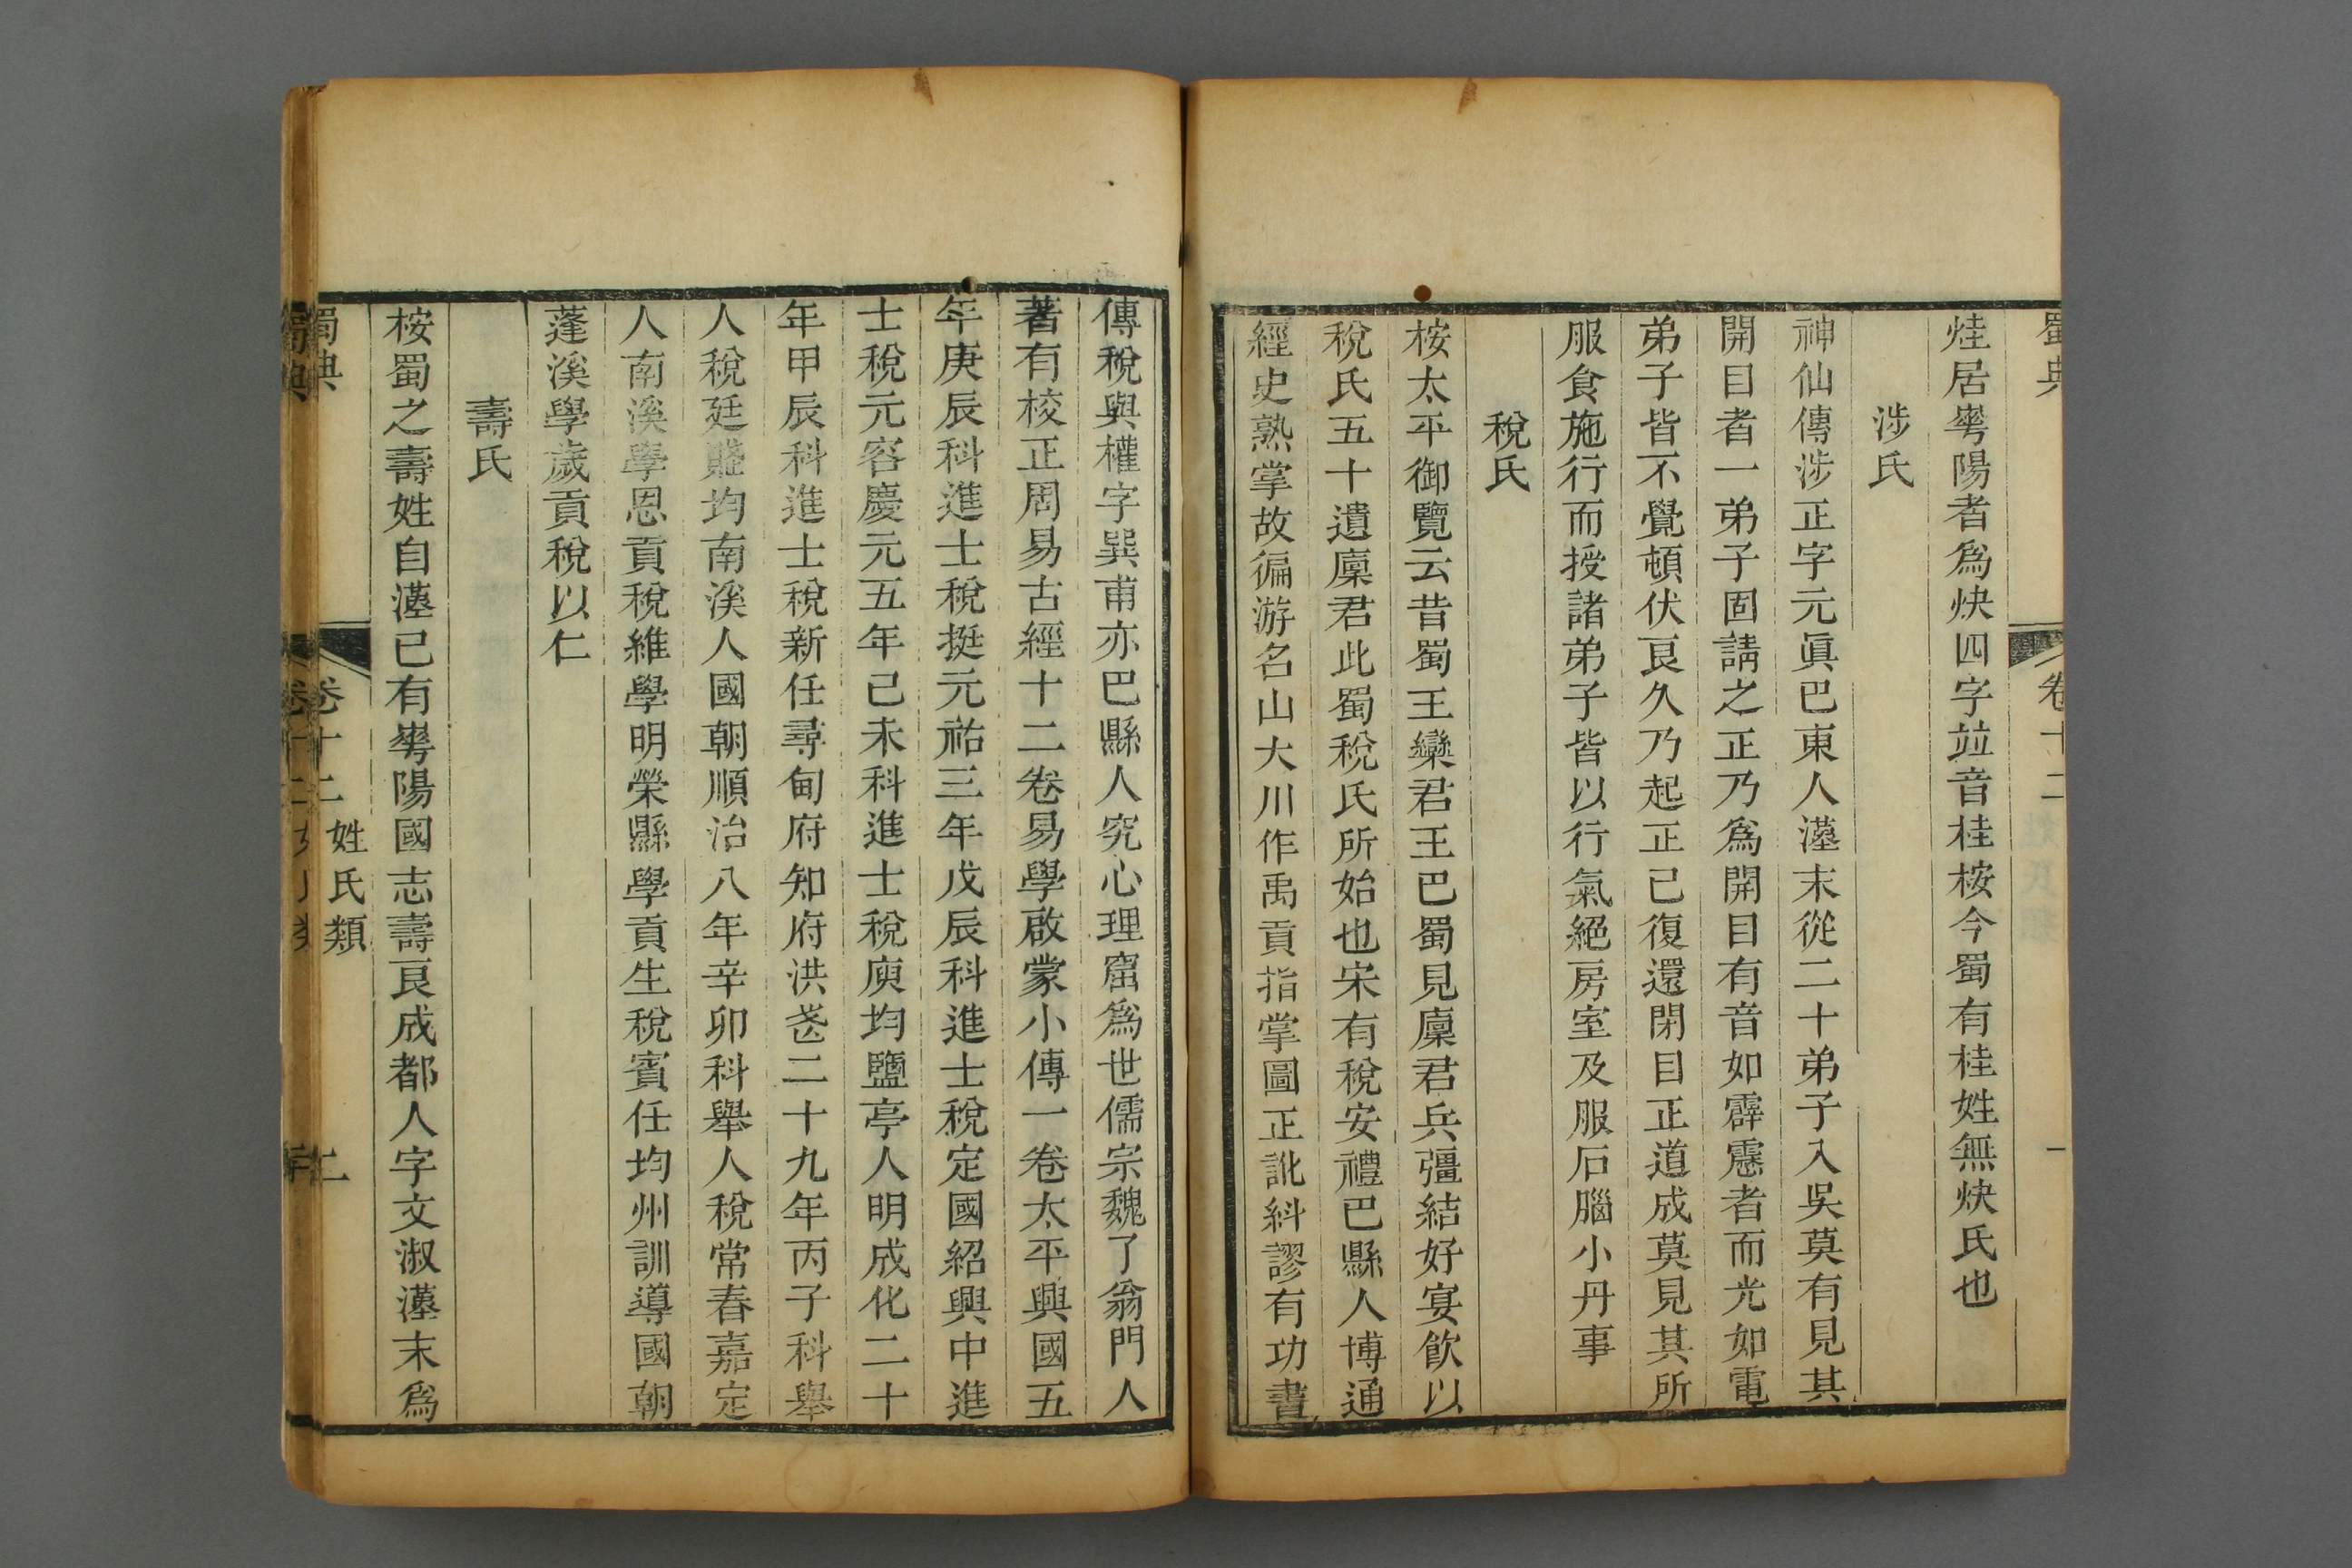 蜀典 卷十二 一
炷居㢲陽者爲炔四字竝音桂桉今蜀有桂姓無炔氏也
涉氏
神仙傳涉正字元眞巴東人漢末從二十弟子入吳莫有見其
開目者一弟子固請之正乃爲開目有音如霹靂者而光如電
弟子皆不覺頓伏良久乃起正已復還閉目正道成莫見其所
服食施行而授諸弟子皆以行氣絕房室及服石腦小丹事
稅氏
桉太平御覽云昔蜀王欒君王巴蜀見廩君兵彊結好宴飲以
稅氏五十遺廩君此蜀稅氏所始也宋有稅安禮巴縣人博通
經史熟掌故徧游名山大川作禹貢指掌圖正訛糾謬有功書
傳稅與權字巽甫亦巴縣人究心理窟爲世儒宗魏了翁門人
著有校正周易古經十二卷易學啟蒙小傳一卷太平興國五
年庚辰科進士稅挺元祐三年戊辰科進士稅定國紹興中進
士稅元容慶元五年己未科進士稅庾均鹽亭人明成化二十
年甲辰科進士稅新任尋甸府知府洪武二十九年丙子科舉
人稅廷均南溪人國朝順治八年辛卯科舉人稅常春嘉定
人南溪學恩貢稅維學明榮縣學貢生稅賓任均州訓導國朝
蓬溪學歲貢稅以仁
壽氏
桉蜀之壽姓自漢已有華陽國志壽良成都人字文淑漢末爲
蜀典 卷十二 姓氏類 二